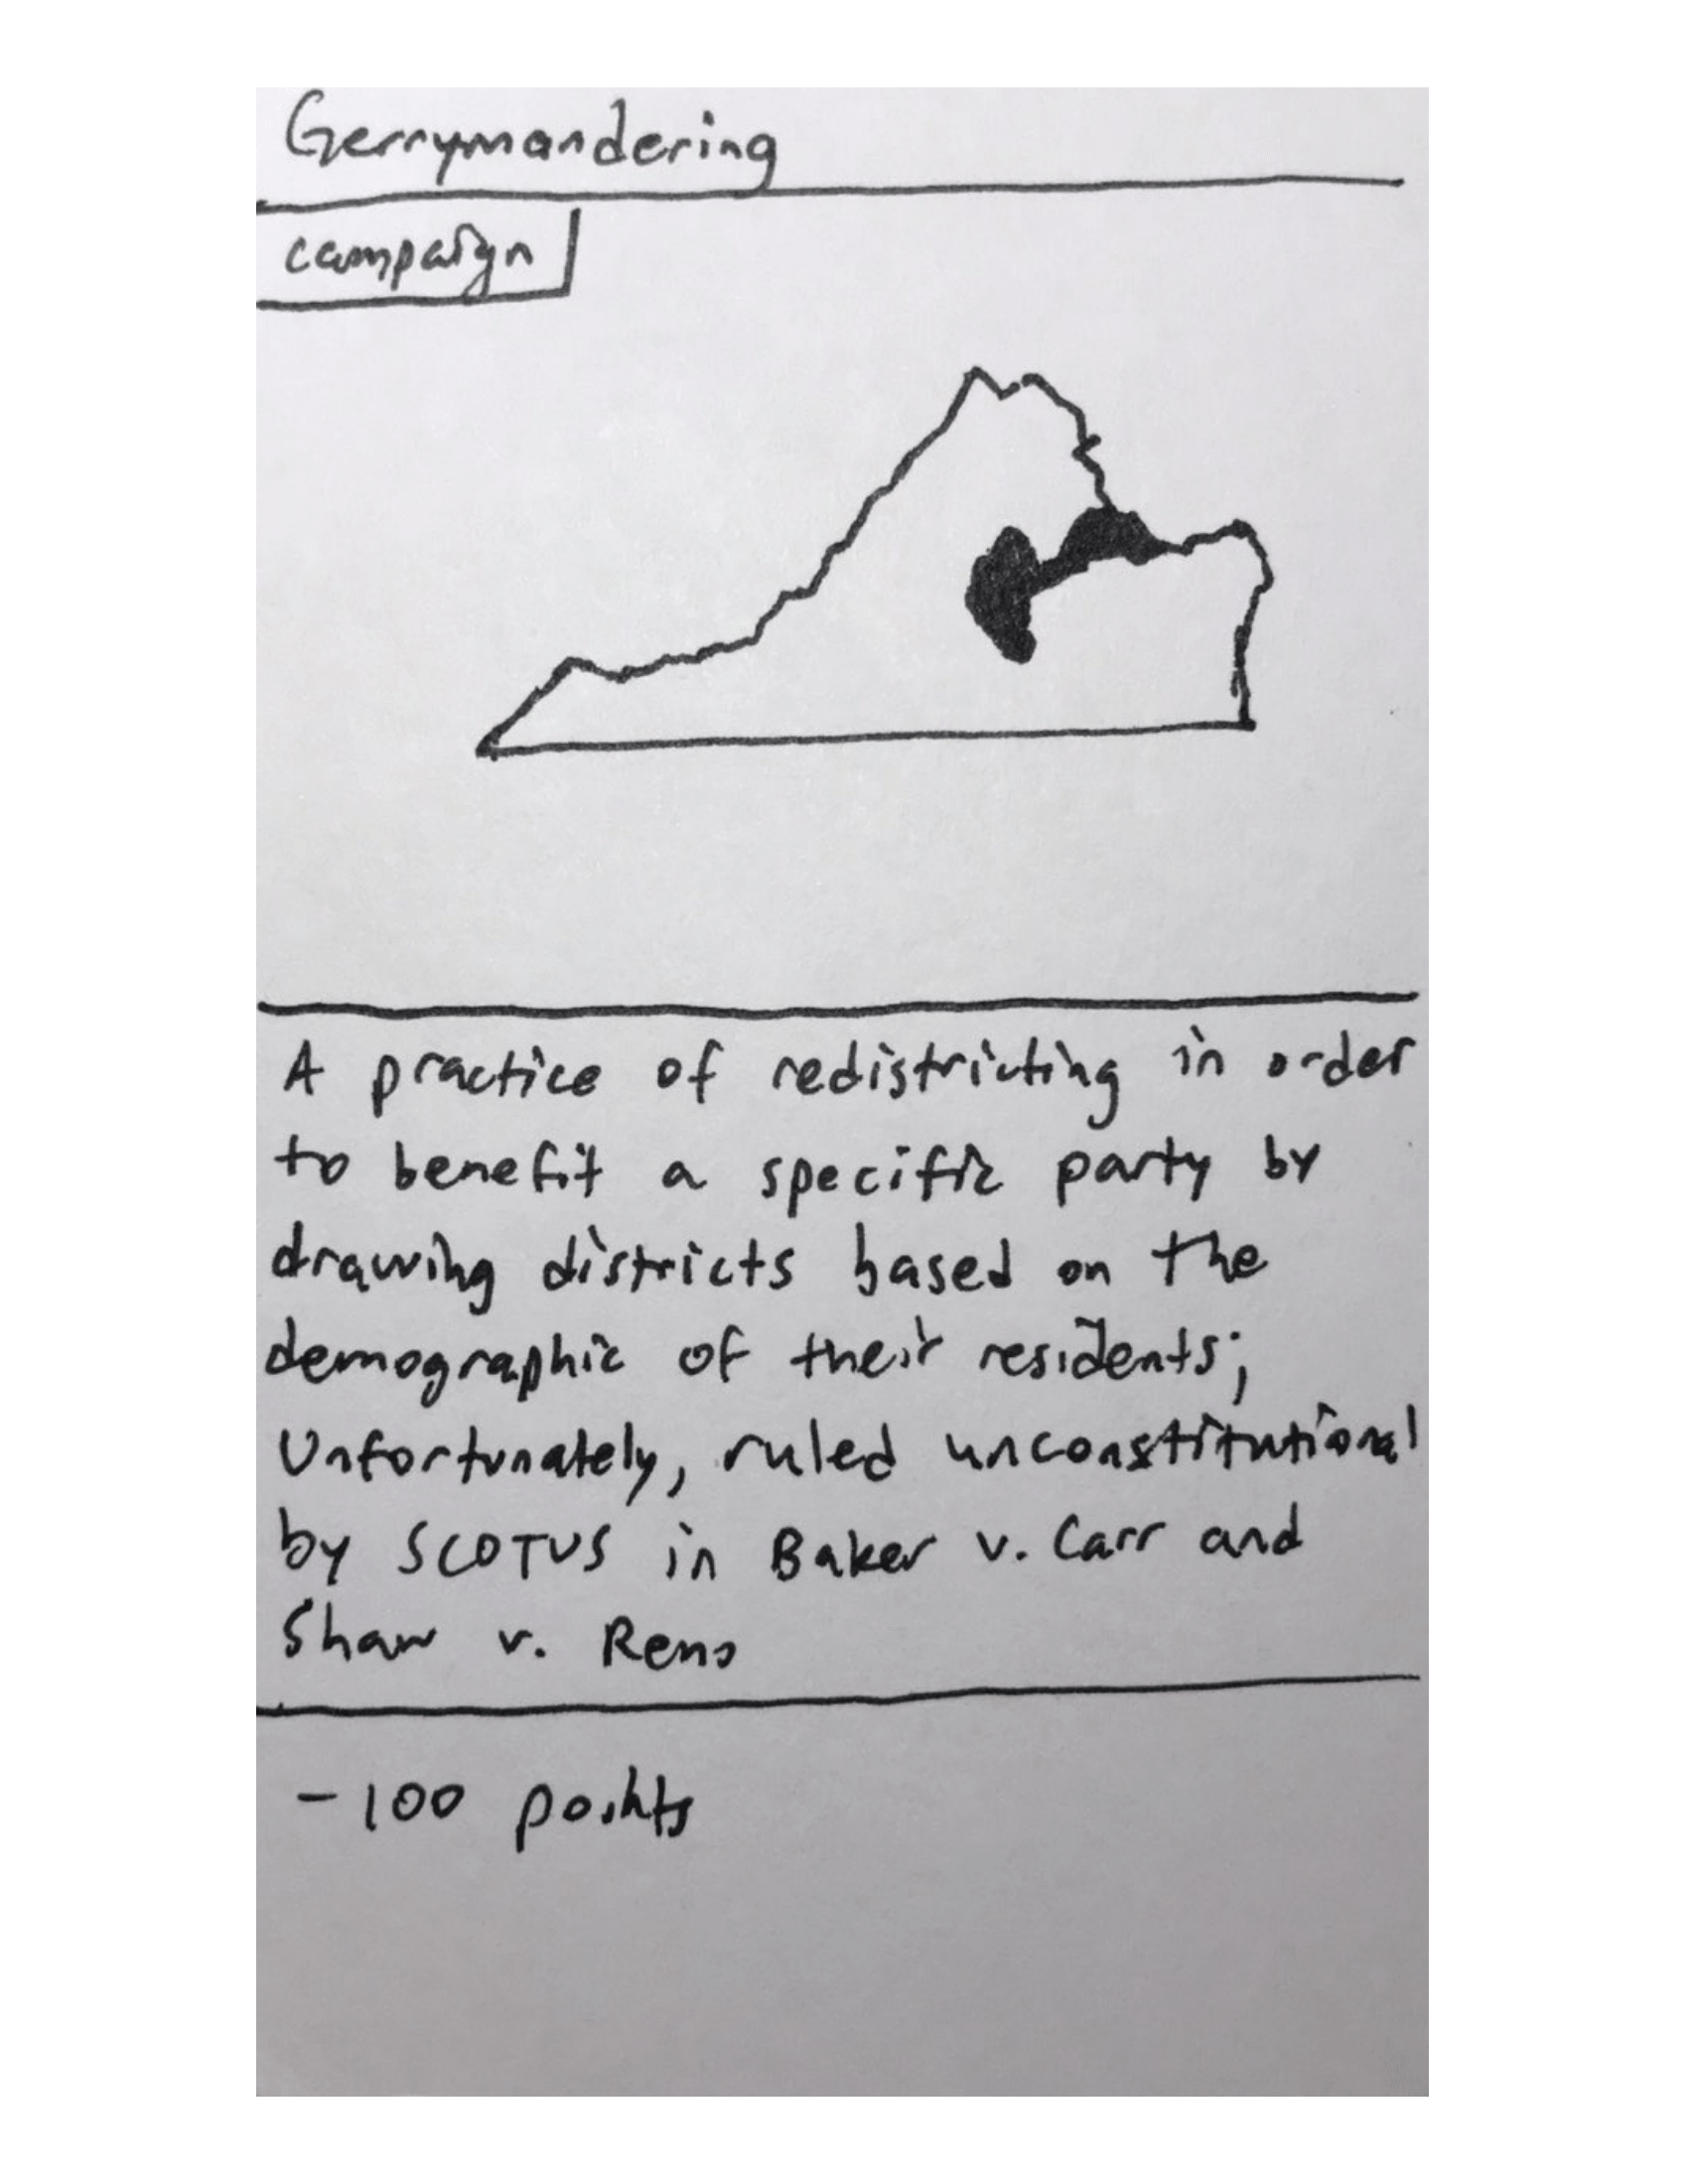 Gerrymandering
campaign
A practice of redistricting in order
to benefit a specific party by
drawing districts based on the
demographic of their residents;
Unfortunately, ruled unconstitutional
by SCOTUS in Baker v. Carr and
Shaw v. Reno
-100 points